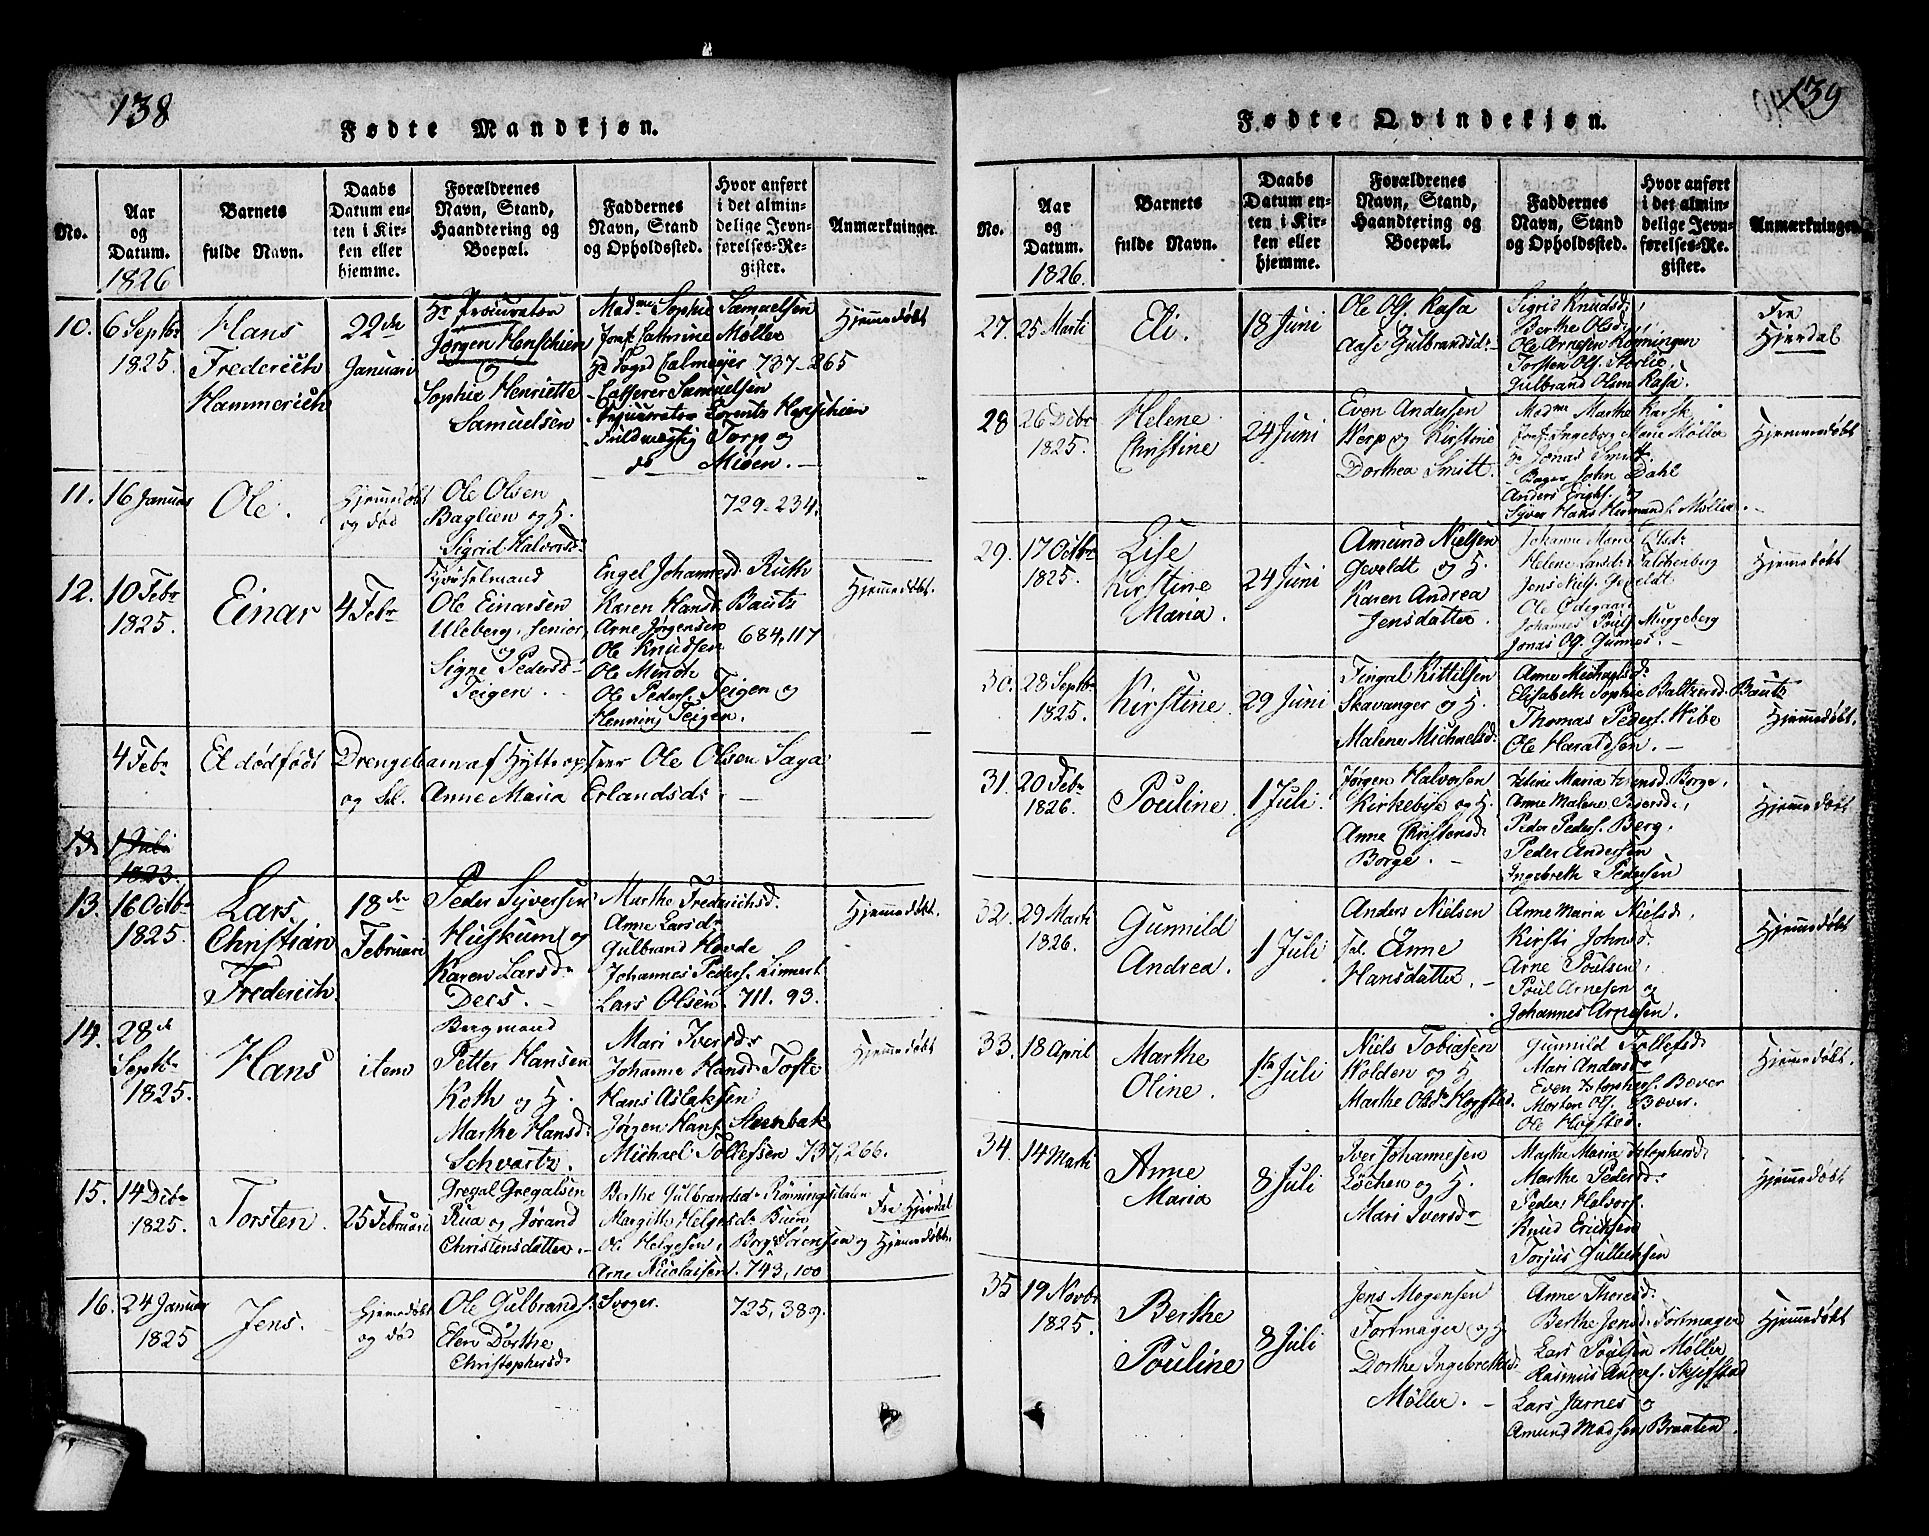 138
Fødte Mandkjøn.
No.
Aar
og
Datum.
1826
Barnets
fulde Navn.
Daabs
Datum en-
ten i Kir-
ken eller
hjemme.
Forældrenes
Navn, Stand,
Haandtering og
Boepæl.
Faddernes
Navn, Stand
og Opholdssted.
Hvor anført
i det almin-
delige Jevn-
førelses-Re-
gister.
Anmærkninger.
10.
6 Septbr
1825.
Hans
Frederich
Hammerich
22de
Januari
Hr Procurator
Jørgen Henschien
og
Sophie Henriette
Samuelsen
Madme Sophie Samuelsen
Jomf. Cathrine Møller
Hr Foged Calmeyer 737-265
Casserer Samuelsen
Procurator Lorentz Henschien
Fuldmægtig Torp og
do Miøen.
Hjemmedøbt
11.
16 Januar
Ole.
Hjemmedøbt
og død
Ole Olsen
Baglien og H.
Sigrid Halvorsd:
729-234.
12.
10 Febr
1825.
Einar
4 Febr
Huusselmand
Ole Einarsen
Uleberg, senior,
og
Signe Pedersd
Teigen.
Engel Johannesd. Ruth
Karen Hansd. Bautz
Arne Jørgensen
Ole Knudsen
Ole Minoh
Ole Peders. Teigen og
Henning Teigen.
684, 117
Hjemmedøbt.
4 Febr
Et dødfødt Drengebarn af Hytteopsser Ole Olsen Saga
og Sel. Anne Maria Erlandsd:
13
1 Juli
1823.
13.
16 Octbr
1825.
Lars
Christian
Frederich
18de
Februari
Peder Syversen
Huskum og
Karen Larsd.
Dees.
Marthe Frederichsd.
Anne Larsdr
Gulbrand Hovde
Johannes Peders. Linnert
Lars Olsen. 711. 93.
Hjemmedøbt.
14.
28de
Septbr
1825.
Hans
item
Bergmand
Petter Hansen
Koth og H.
Marthe Hansd:
Schvartz.
Mari Iversdr
Johanne Hansd. Tofte
Hans Aslaksen
Jørgen Hans. Steenbak
Michael Tollefsen 737, 266.
Hjemmedøbt
15.
14 Debr
1825.
Torsten.
25 Februari
Gregal Gregalsen
Rua og Jørand
Christensdatter.
Berthe Gulbrandsd. Rønningsdalen
Margitte Helgesdr Buen
Ole Helgesen, Borg Sørensen og
Arne Nicolaisen. 743, 100
Fra Hjerdal
Hjemmedøbt.
16.
24 Januar
1825
Jens.
Hjemmedøbt
og død
Ole Gulbrands. Svoger.
Elen Dorthe
Christophersd.
725, 389.
139
Fødte Qvindekjøn.
No.
Aar
og
Datum.
1826.
Barnets
fulde Navn.
Daabs
Datum en-
ten i Kir-
ken eller
hjemme.
Forældrenes
Navn, Stand,
Haandtering og
Boepæl.
Faddernes
Navn, Stand
og Opholdssted.
Hvor anført
i det almin-
delige Jevn-
førelses-Re-
gister.
Anmærkninger.
27.
25 Marti
Eli.
18 Juni
Ole Ols. Rasa
Aase Gulbrandsd:
Sigrid Knudsd.,
Berthe Olsd.,
Ole Arnesen Rønningen
Torsten Ols. Storlie,
Gulbrand Olsen Rasa.
Fra
Hjerdal
28
26 Debr
1825.
Helene
Christine
24 Juni
Even Andersen
Werp og Kirstine
Dorthea Smitt.
Madme Marthe Karsk
Jomf. Ingeborg Marie Møller
Hr Jonas Smitt
Bager John Dahl
Anders Erichs. og
Syver Hans Hermand s. Møller.
Hjemmedøbt
29.
17 Octbr
1825.
Lise
Kirstine
Maria.
24 Juni
Amund Nielsen
Geveldt og H.
Karen Andrea
Jensdatter.
Johanne Marie Olsdr
Helene Larsdr Falchenberg
Jens Niels. Geveldt
Ole Ødegaard
Johannes Pouls. Muggeberg
Jonas Ols. Gunnes.
Hjemmedøbt
30.
28 Septbr
1825.
Kirstine.
29 Juni
Fingal Kittilsen
Skavanger og H.
Malene Michaelsd:
Anne Michaelsdr
Elisabeth Sophie Baltzersd. Bautz
Thomas Peders. Wibe
Ole Haraldsen.
Hjemmedøbt.
31.
20 Febr
1826.
Pouline
1 Juli.
Jørgen Halvorsen
Kirkebye og H.
Anne Christensd.
Borge.
Anne Malene Pedersd.,
Peder Peders. Berg,
Peder Andersen
Ingebreth Pedersen
Hjemmedøbt
32.
29 Marti
1826.
Gunnild
Andrea.
1 Juli
Anders Nielsen
Sel. Anne
Hansdatter.
Anne Maria Nielsd.,
Kirsti Johnsd.
Arne Poulsen,
Poul Arnesen og
Johannes Arnesen.
Hjemmedøbt
33.
18 April
Marthe
Oline.
1ste Juli
Niels Tobiasen
Wolden og H.
Marthe Olsdr Hogsted.
Gunnild Tollefsd.
Mari Andersdr
Even Xstophers. Bæver
Morten Ols. Bæver.
Ole Hogsted.
Hjemmedøbt.
34.
14 Marti
Anne
Maria
8 Juli
Iver Johannesen
Løchen og H.
Mari Iversdr
Marthe Maria Xstophersd.
Marthe Pedersd.
Peder Halvors.
Knud Erichsen
Torjus Gulliksen
Hjemmedøbt
35
19 Novbr
1825.
Berthe
Pouline
8 Juli
Jens Mogensen
Formager og H
Dorthe Ingebrethsd.
Møller.
Anne Thoresd.
Berthe Jensd. Formager
Lars Poulsen Møller
Rasmus Anders. Skjefstad
Lars Jarnes og
Amund Madsen Braaten.
Hjemmedøbt